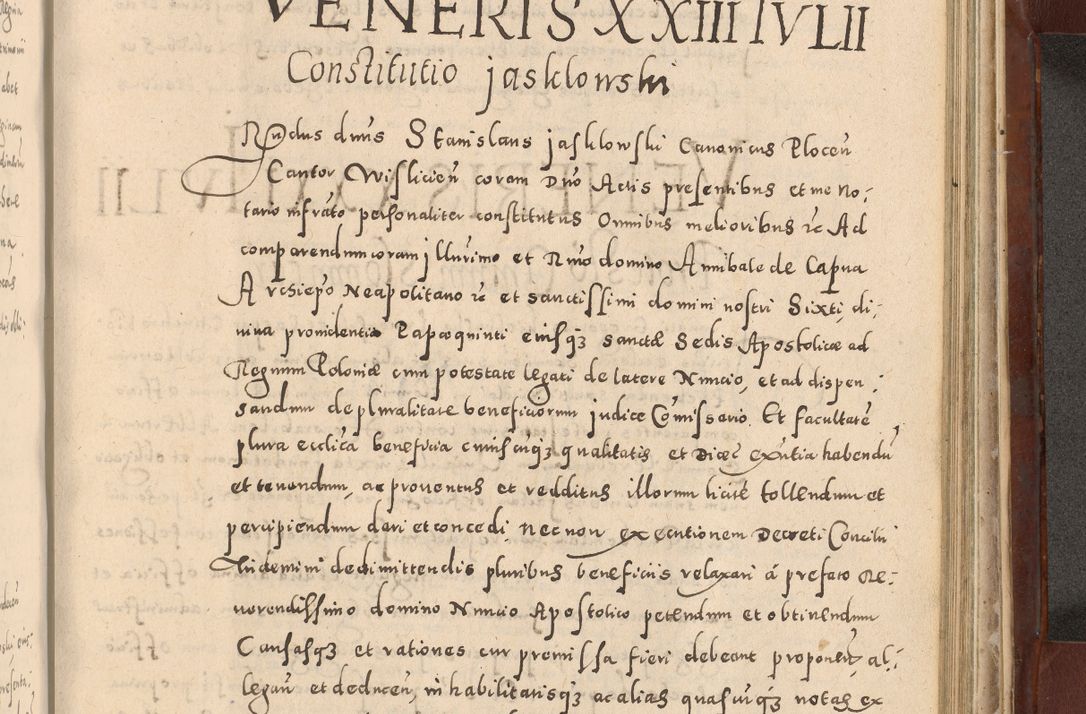 VENERIS XXIIII IVLII
Constitutio jasklowski
Rndus dnus Stanislaus jasklowski Canonicus Plocen̄
Cantor Wislicien̄ coram Dno Actis presentibus et me No,-
tario infrāto personaliter constitutus Omnibus melioribus rc Ad
comparendum coram jllurimo et Rmo domino Annibale de Capua
Archiepo Neapolitano rc et sanctissimi domini nostri Sixti, di,-
uina prouidentia Papæ quinti eiusqꝫ sanctæ Sedis Apostolicæ ad
Regnum Poloniæ cum potestate legati de latere Nuncio, et ad dispen,-
sandum de pluralitate beneficiorum judice Comissario. Et facultatē
plura ecclīca beneficia cuiuscūqꝫ qualitatis et Dioec exn̄tia habendū
et tenendum, ac prouentus et redditus illorum licitē tollendum et
percipiendum dari et concedi, necnon executionem Decreti Concilii
Tridentini de dimittendis pluribus beneficiis relaxari á prefato Re,-
uerendissimo domino Nuncio Apostolico petendum et obtinendum
Causasqꝫ et rationes cur premissa fieri debeant proponen̄, al,-
legan̄ et deducen̄, inhabilitatisqꝫ ac alias quascūqꝫ notas ex